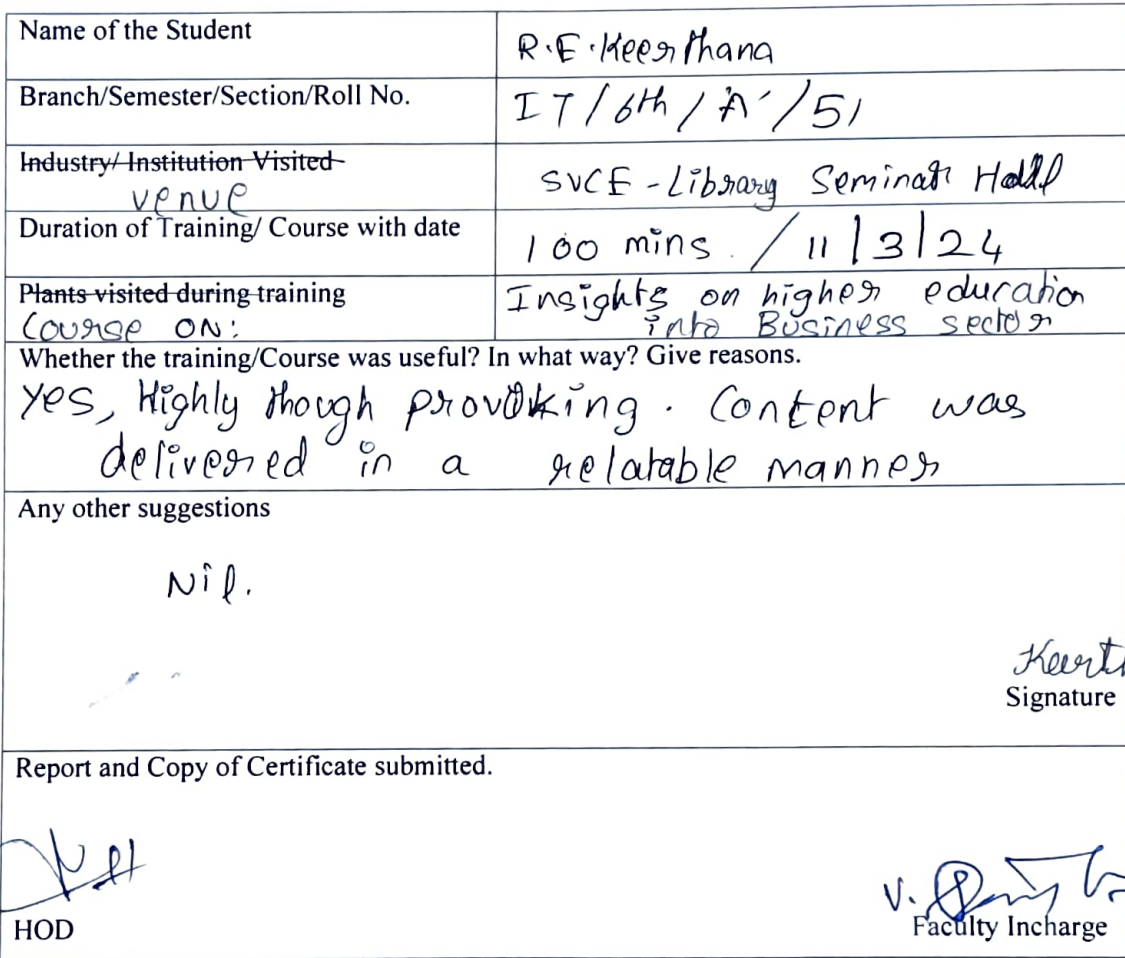 Name of the Student
R.E.Keerthana
Branch/Semester/Section/Roll No.
IT / 6th / 'A' / 51
Industry/ Institution Visited
venue
SVCE - Library Seminar Hall
Duration of Training/ Course with date
100 mins. / 11/3/24
Plants visited during training
Course ON:
Insights on higher education
into Business sector
Whether the training/Course was useful? In what way? Give reasons.
Yes, Highly though provoking. Content was
delivered in a relatable manner
Any other suggestions
Nil.
Signature
Report and Copy of Certificate submitted.
HOD
Faculty Incharge